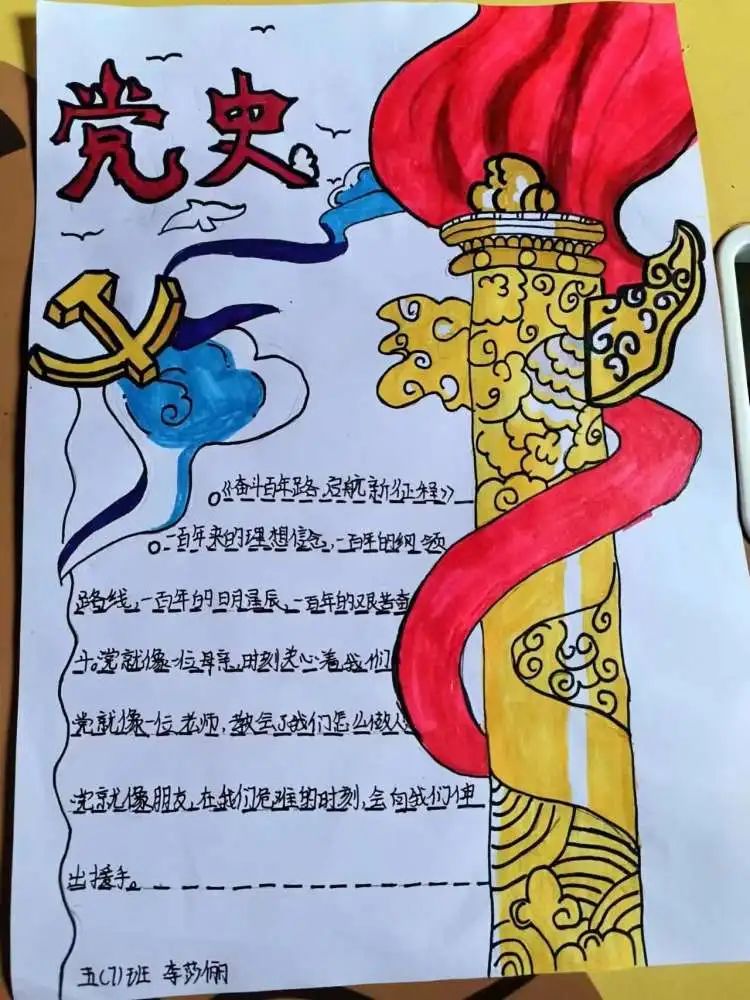 党史
《奋斗百年路,启航新征程》
一百年来的理想信念,一百年的纲领
路线,一百年的日月星辰,一百年的艰苦奋
斗。党就像一位母亲,时刻关心着我们
党就像一位老师,教会了我们怎么做人
党就像朋友,在我们危难的时刻,会向我们伸
出援手。
五(7)班 李莎俪